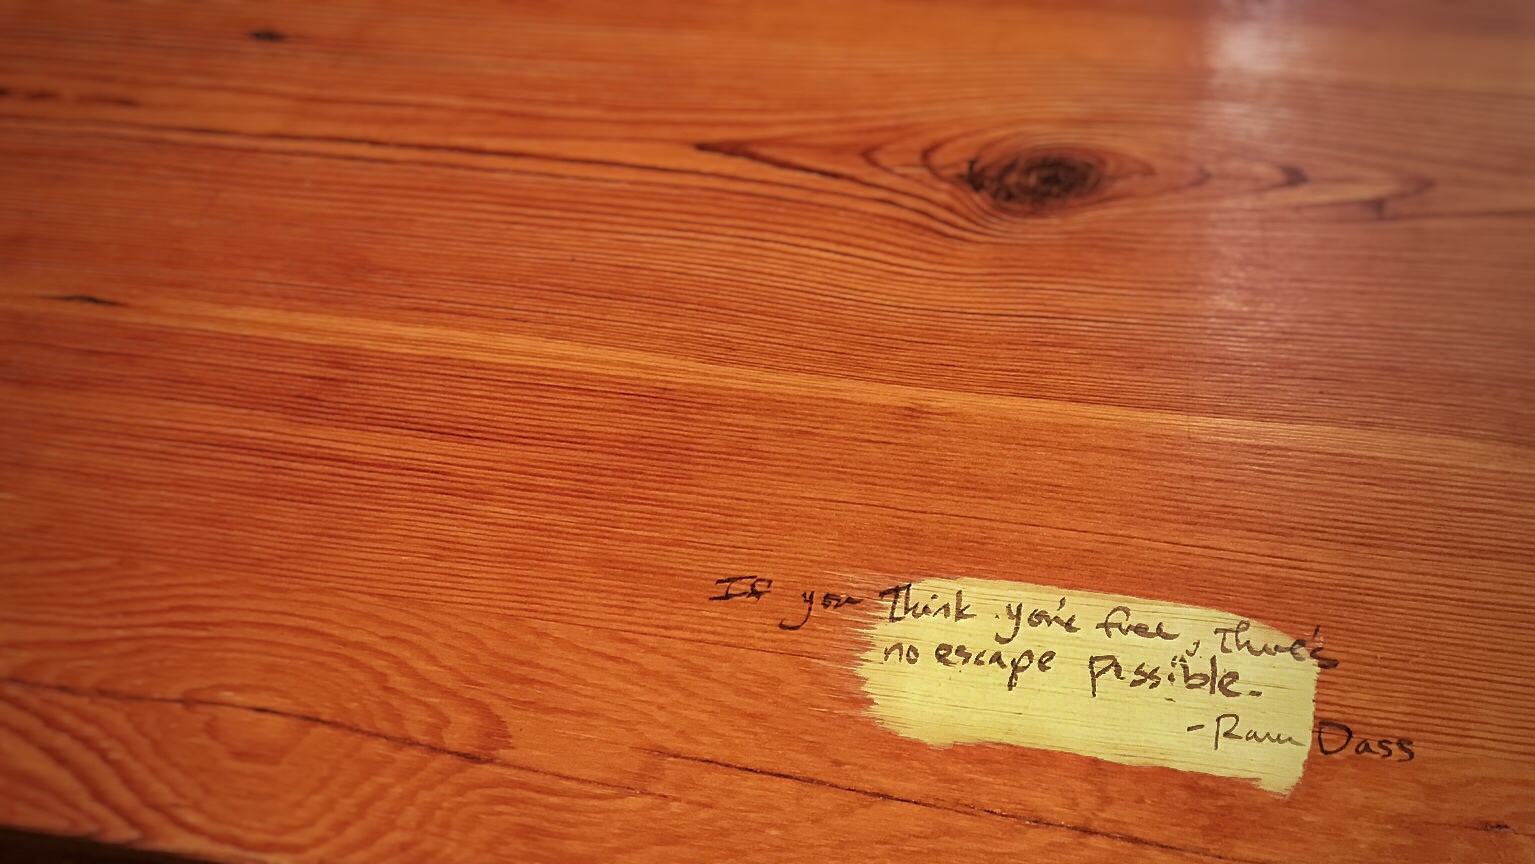 If you think you're free, there's
no escape possible.
-Ram Dass